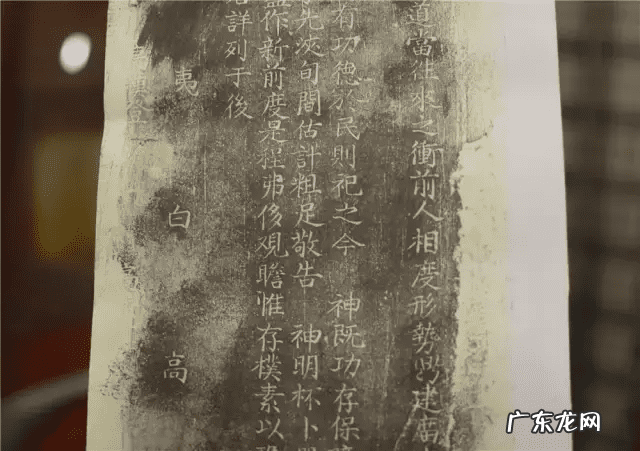 道當往來之衝前人相度形勢建
有功德於民則祀之今 神既功存保
浹旬間估計粗足敬告 神明杯卜
作新前度是程弗侈观瞻惟存樸素以
詳列于後
夷 白 高
广东龙网